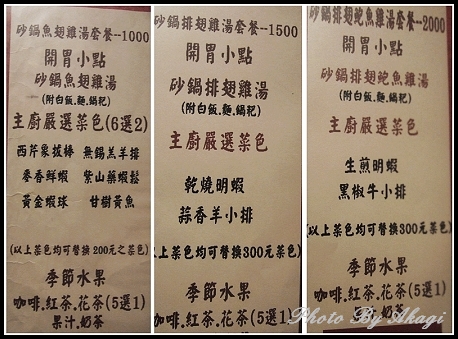 砂鍋魚翅雞湯套餐--1000
開胃小點
砂鍋魚翅雞湯
(附白飯.麵.鍋粑)
主廚嚴選菜色(6選2)
西芹象拔棒 無錫羔羊排
麥香鮮蝦 紫山藥蝦鬆
黃金蝦球 甘樹黃魚
(以上菜色均可替換 200元之菜色)
季節水果
咖啡.紅茶.花茶(5選1)
果汁.奶茶
砂鍋排翅雞湯套餐--1500
開胃小點
砂鍋排翅雞湯
(附白飯.麵.鍋粑)
主廚嚴選菜色
乾燒明蝦
蒜香羊小排
(以上菜色均可替換300元菜色)
季節水果
咖啡.紅茶.花茶(5選1)
果汁.奶茶
砂鍋排翅鮑魚雞湯套餐--2000
開胃小點
砂鍋排翅鮑魚雞湯
(附白飯.麵.鍋粑)
主廚嚴選菜色
生煎明蝦
黑椒牛小排
(以上菜色均可替換300元菜色)
季節水果
咖啡.紅茶.花茶(5選1)
Photo By Akagi